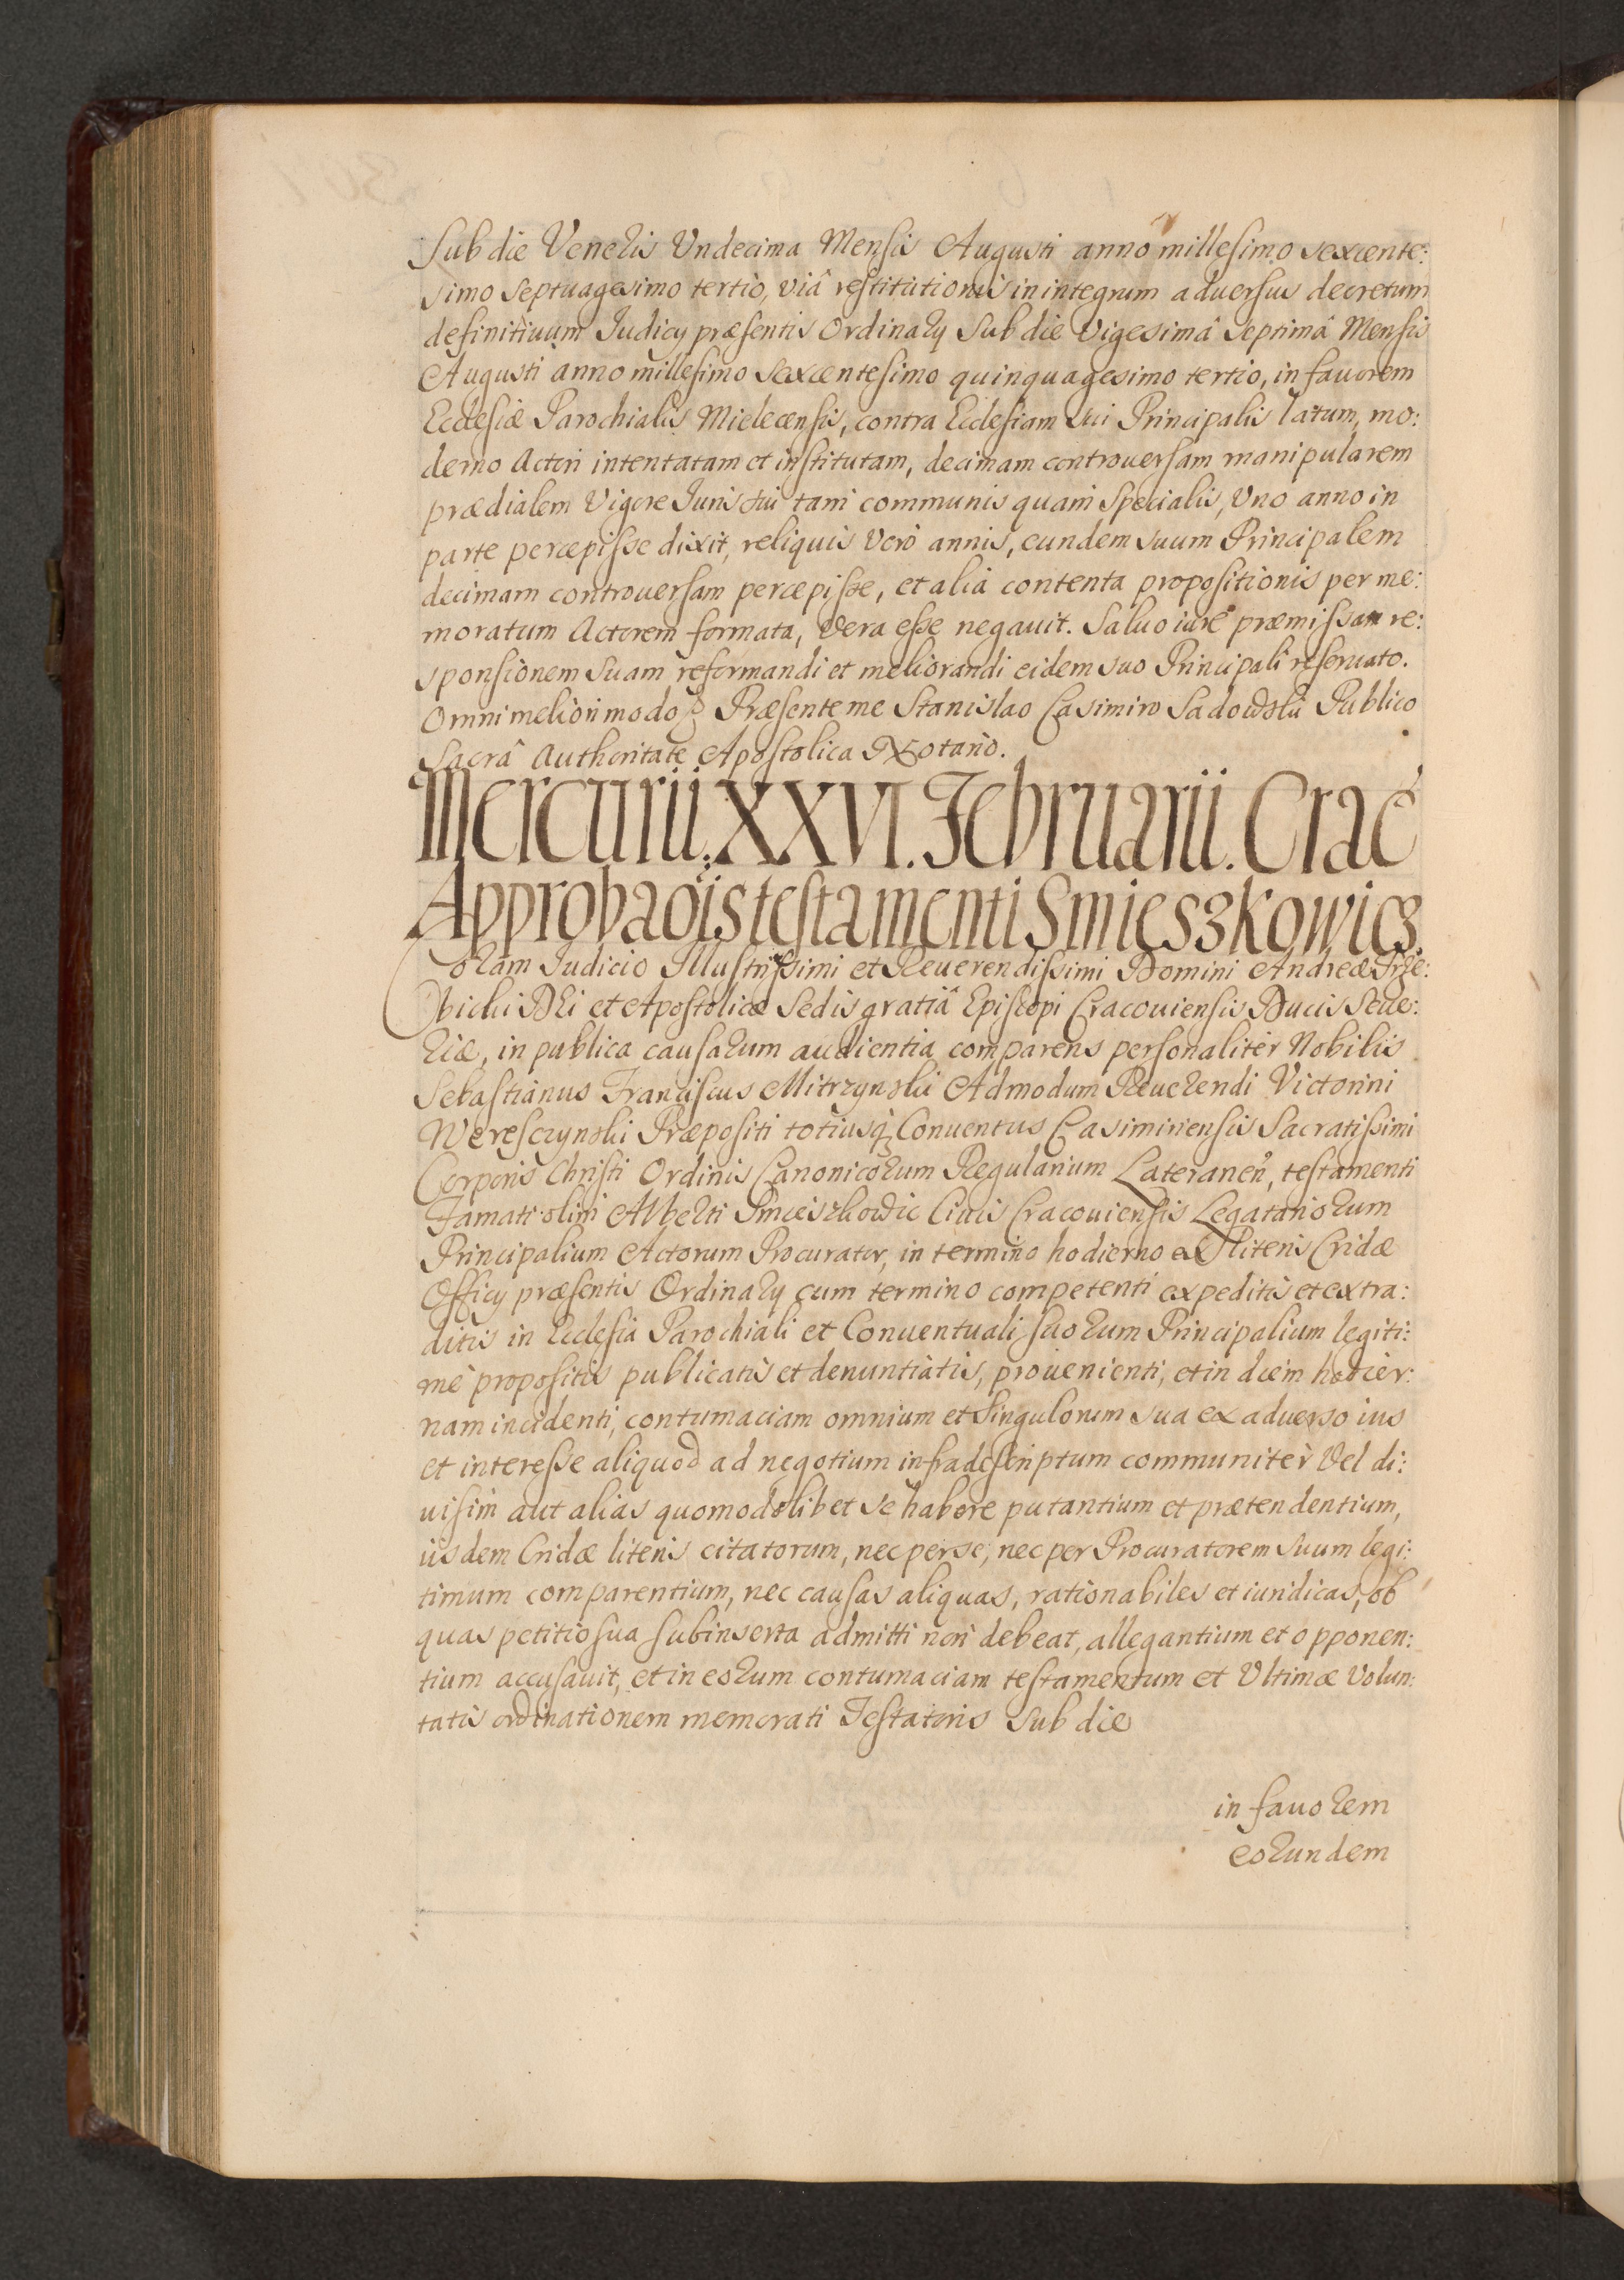 Sub die Veneris Undecima Mensis Augusti anno millesimo sexcente:
simo septuagesimo tertio, viâ restitutionis in integrum aduersus decretum
definitiuum Iudicy præsentis Ordinary sub die vigesimâ septimâ Mensis
Augusti anno millesimo sexcentesimo quinquagesimo tertio, in fauorem
Ecclesiæ Parochialis Mielecensis, contra Ecclesiam sui Principalis latum, mo:
derno Actori intentatam et institutam, decimam controuersam manipularem
prædialem vigore Iuris sui tam communis quam specialis, Uno anno in
parte percepisse dixit, reliquis verò annis, eundem suum Principalem
decimam controuersam percepisse, et alia contenta propositionis per me:
moratum Actorem formata, vera esse negauit. Saluo iure præmissam re:
sponsionem suam reformandi et meliorandi eidem suo Principali reseruato.
Omni meliori modo Præsente me Stanislao Casimiro Sadowski Publico
Sacrâ Authoritate Apostolica Notario.
Mercurii. XXVI. Februarii. Crac
Approbaõis testamenti Smieszkowicz.
Coram Iudicio Illustrissimi et Reuerendissimi Domini Andreæ Trze:
bicki Dei et Apostolicæ Sedis gratiâ Episcopi Cracouiensis Ducis Seue:
riæ, in publica causarum audientia comparens personaliter Nobilis
Sebastianus Franciscus Mitrzynski Admodum Reuerendi Victorini
Wereszynski Præpositi totiusq; Conuentus Casimiriensis Sacratissimi
Corporis Christi Ordinis Canonicorum Regularium Lateraneñ, testamenti
Famati olim Alberti Smieszkowic Ciuis Cracouiensis Legatariorum
Principalium Actorum Procurator, in termino hodierno ex literis Cridæ
Officy præsentis Ordinary cum termino competenti expeditis et extra:
ditis in Ecclesia Parochiali et Conuentuali suorum Principalium legiti:
mè propositis publicatis et denuntiatis, prouenienti, et in diem hodier:
nam incidenti, contumaciam omnium et singulorum sua ex aduerso ius
et interesse aliquod ad negotium infradescriptum communiter vel di:
uisim aut alias quomodolibet se habere putantium et prætendentium,
iisdem Cridæ literis citatorum, nec per se, nec per Procuratorem suum legi:
timum comparentium, nec causas aliquas, rationabiles et iuridicas, ob
quas petitio sua subinserta admitti non debeat, allegantium et opponen:
tium accusauit, et in eorum contumaciam testamentum et Ultimæ volun:
tatis ordinationem memorati Testatoris sub die
in fauorem
eorundem